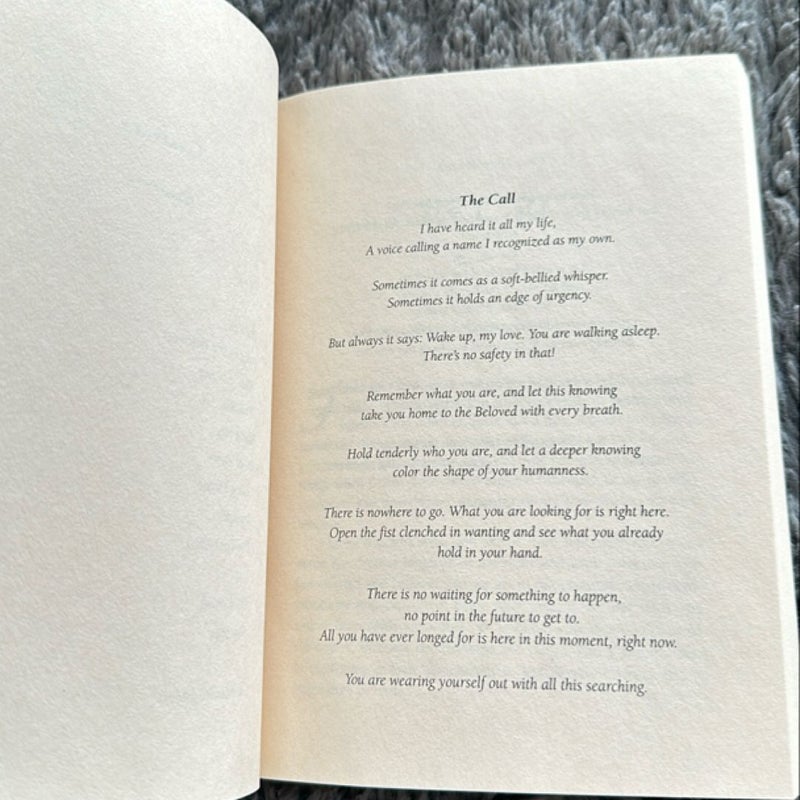 The Call
I have heard it all my life,
A voice calling a name I recognized as my own.
Sometimes it comes as a soft-bellied whisper.
Sometimes it holds an edge of urgency.
But always it says: Wake up, my love. You are walking asleep.
There's no safety in that!
Remember what you are, and let this knowing
take you home to the Beloved with every breath.
Hold tenderly who you are, and let a deeper knowing
color the shape of your humanness.
There is nowhere to go. What you are looking for is right here.
Open the fist clenched in wanting and see what you already
hold in your hand.
There is no waiting for something to happen,
no point in the future to get to.
All you have ever longed for is here in this moment, right now.
You are wearing yourself out with all this searching.